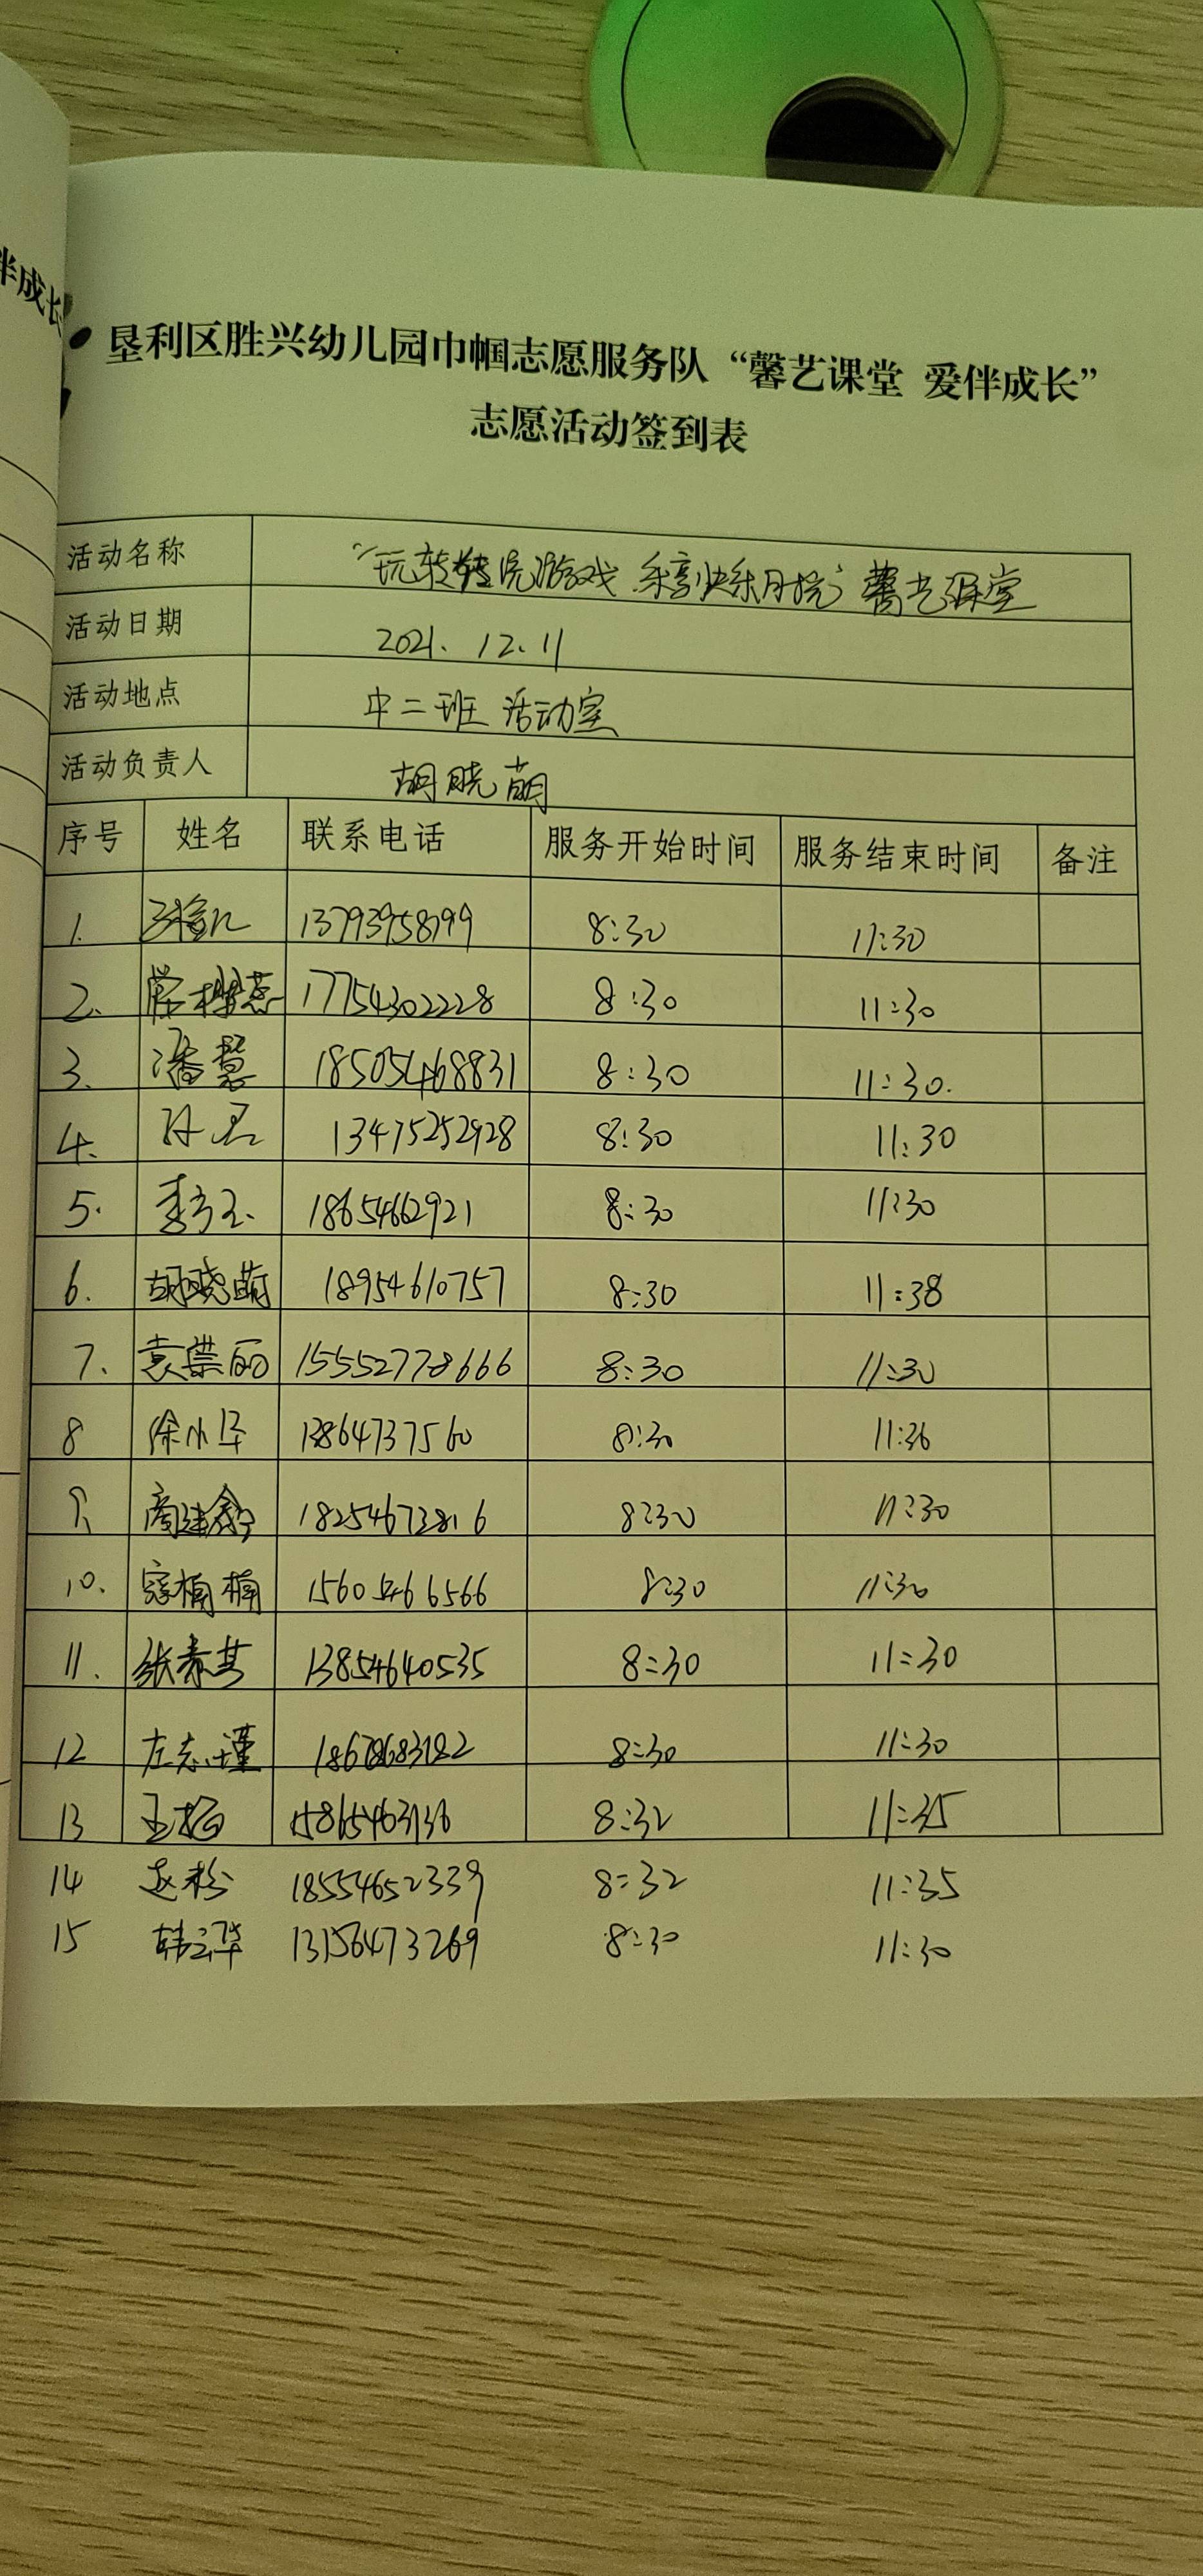 伴成长
垦利区胜兴幼儿园巾帼志愿服务队“馨艺课堂 爱伴成长”
志愿活动签到表
活动名称 “玩转传统游戏 乐享快乐时光” 馨艺课堂
活动日期 2021. 12. 11
活动地点 中二班 活动室
活动负责人 胡晓萌
序号 姓名 联系电话 服务开始时间 服务结束时间 备注
1. 13793958799 8:30 11:30
2. 17754302228 8:30 11:30
3. 潘慧 18505468831 8:30 11:30.
4. 孙君 13475252928 8:30 11:30
5. 18654662921 8:30 11:30
6. 胡晓萌 18954610757 8:30 11:38
7. 袁崇丽 15552778666 8:30 11:30
8 徐小华 13864737560 8:30 11:36
9. 18254673816 8:30 11:30
10. 寇楠楠 15605466566 8:30 11:30
11. 张春芳 13854640535 8:30 11:30
12 左志瑾 18678683182 8:30 11:30
13 王杨 15865463136 8:32 11:35
14 赵松 18554652339 8:32 11:35
15 韩云华 13156473269 8:30 11:30